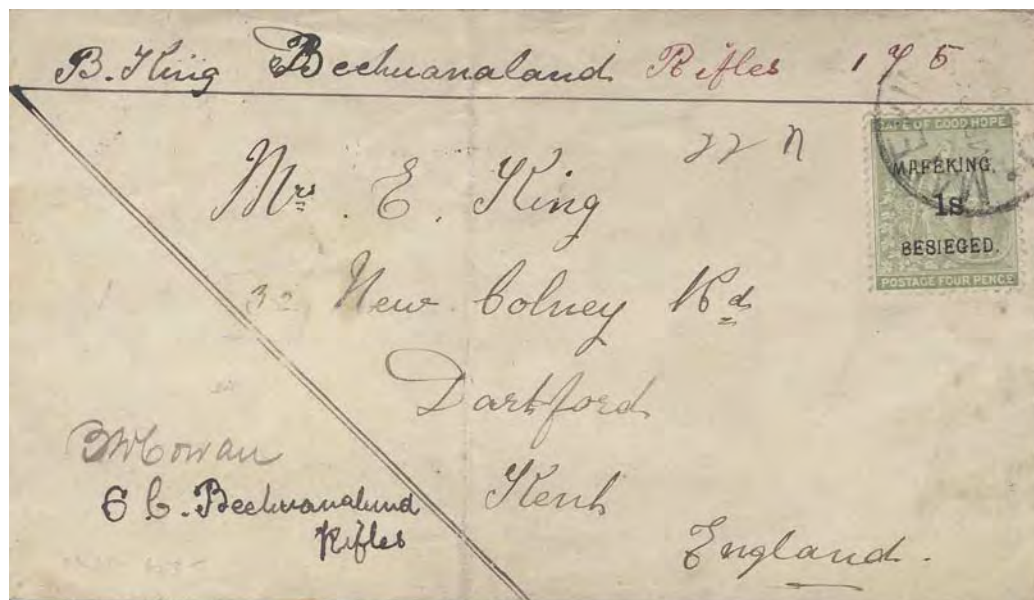 B. King Bechuanaland Rifles 175
22 n
CAPE OF GOOD HOPE
MAFEKING,
1s
BESIEGED.
POSTAGE FOUR PENCE
Mrs. E. King
32 New Colney Rd
Dartford
Kent
England.
Cowan
Bechuanaland
Rifles